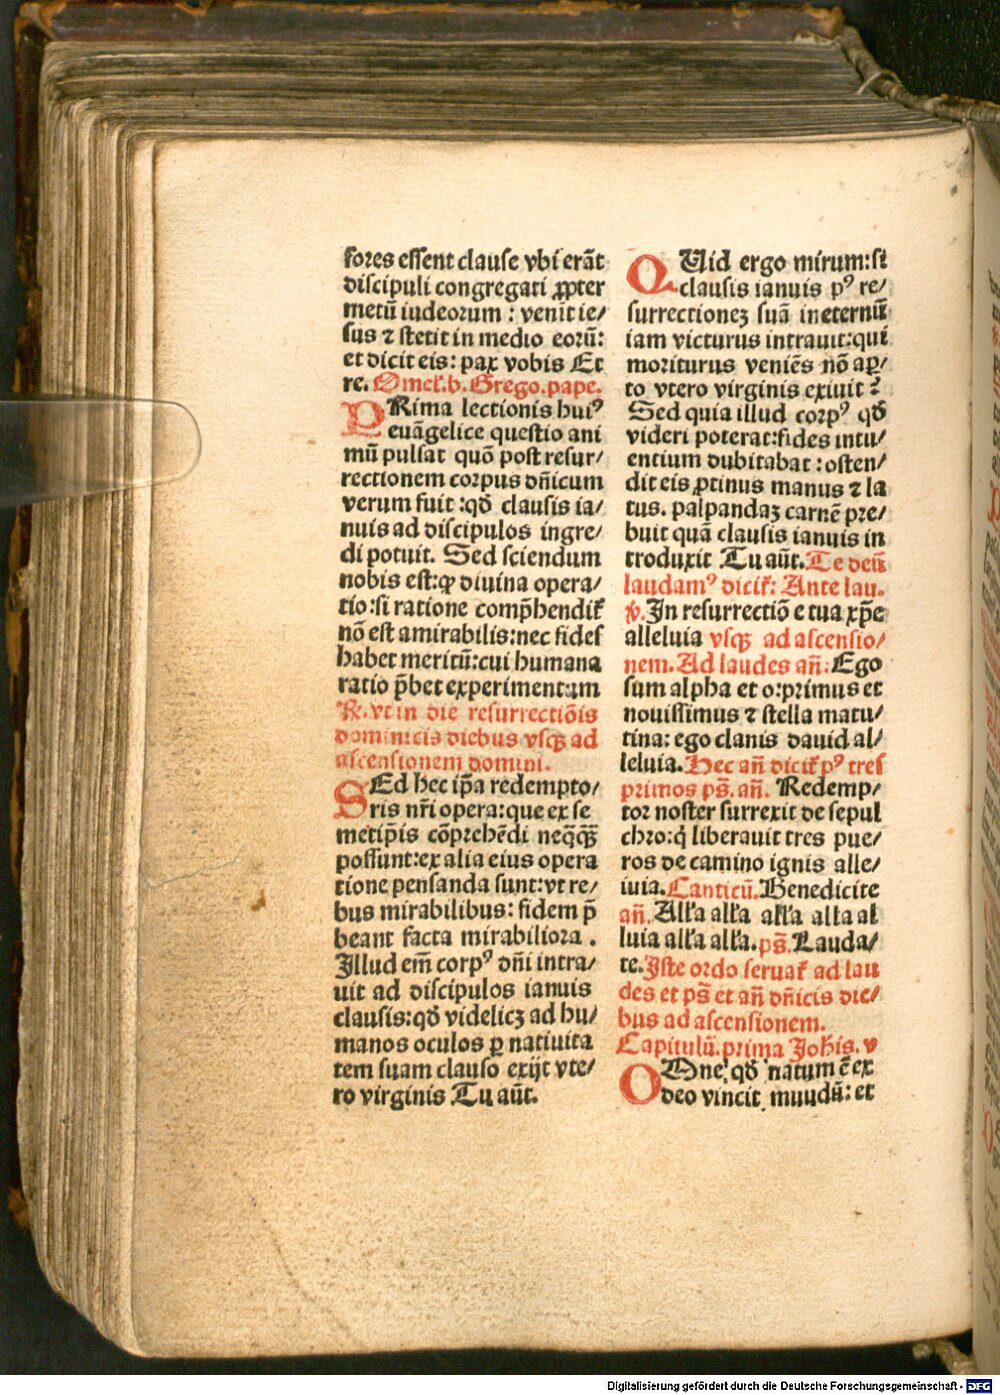 fores essent clause vbi erāt
discipuli congregati ꝓpter
metū iudeorum : venit ie/
sus ⁊ stetit in medio eorū:
et dicit eis: pax vobis Et
re. Omel. b. Grego. pape.
PRima lectionis huiꝰ
euāgelice questio ani
mū pulsat quō post resur/
rectionem corpus dn̄icum
verum fuit :qd̄ clausis ia/
nuis ad discipulos ingre/
di potuit. Sed sciendum
nobis est:ꝙ diuina opera/
tio:si ratione comp̄hendit̄
nō est amirabilis:nec fides
habet meritū:cui humana
ratio p̄bet experimentum
R. vt in die resurrectiōis
dominicis diebus vsqꝫ ad
ascensionem domini.
SEd hec ip̄a redempto/
ris nr̄i opera:que ex se
metip̄is cōprehēdi neq̄q̄ꝫ
possunt:ex alia eius opera
tione pensanda sunt:vt re/
bus mirabilibus: fidem p̄
beant facta mirabiliora .
Illud em̄ corpꝰ dn̄i intra/
uit ad discipulos ianuis
clausis:qd̄ videlicꝫ ad hu/
manos oculos ꝑ natiuita
tem suam clauso exijt vte/
ro virginis Tu aūt.
QUid ergo mirum:si
clausis ianuis pꝰ re/
surrectioneꝫ suā in eternū
iam victurus intrauit:qui
moriturus veniēs nō aꝑ/
to vtero virginis exiuit ?
Sed quia illud corpꝰ qd̄
videri poterat:fides intu/
entium dubitabat : osten/
dit eis ꝓtinus manus ⁊ la
tus. palpandaꝫ carnē pre/
buit quā clausis ianuis in
troduxit Tu aūt. Te deū
laudamꝰ dicit̄: Ante lau.
v̄. In resurrectiō e tua xp̄e
alleluia vsqꝫ ad ascensio/
nem. Ad laudes an̄: Ego
sum alpha et o:primus et
nouissimus ⁊ stella matu/
tina: ego clanis dauid al/
leluia. Hec an̄ dicit̄ pꝰ tres
primos ps̄. an̄. Redemp/
tor noster surrexit de sepul
chro:q̇ liberauit tres pue/
ros de camino ignis alle/
iuia. Canticū. Benedicite
an̄. Alła alła alła alla al
luia alła alła. ps̄. Lauda/
te. Iste ordo seruat̄ ad lau
des et ps̄ et an̄ dn̄icis die/
bus ad ascensionem.
Capitulū. prima Joħis. v
OMne qd̄ natum ē ex
deo vincit muudū: et
Digitalisierung gefördert durch die Deutsche Forschungsgemeinschaft - DFG